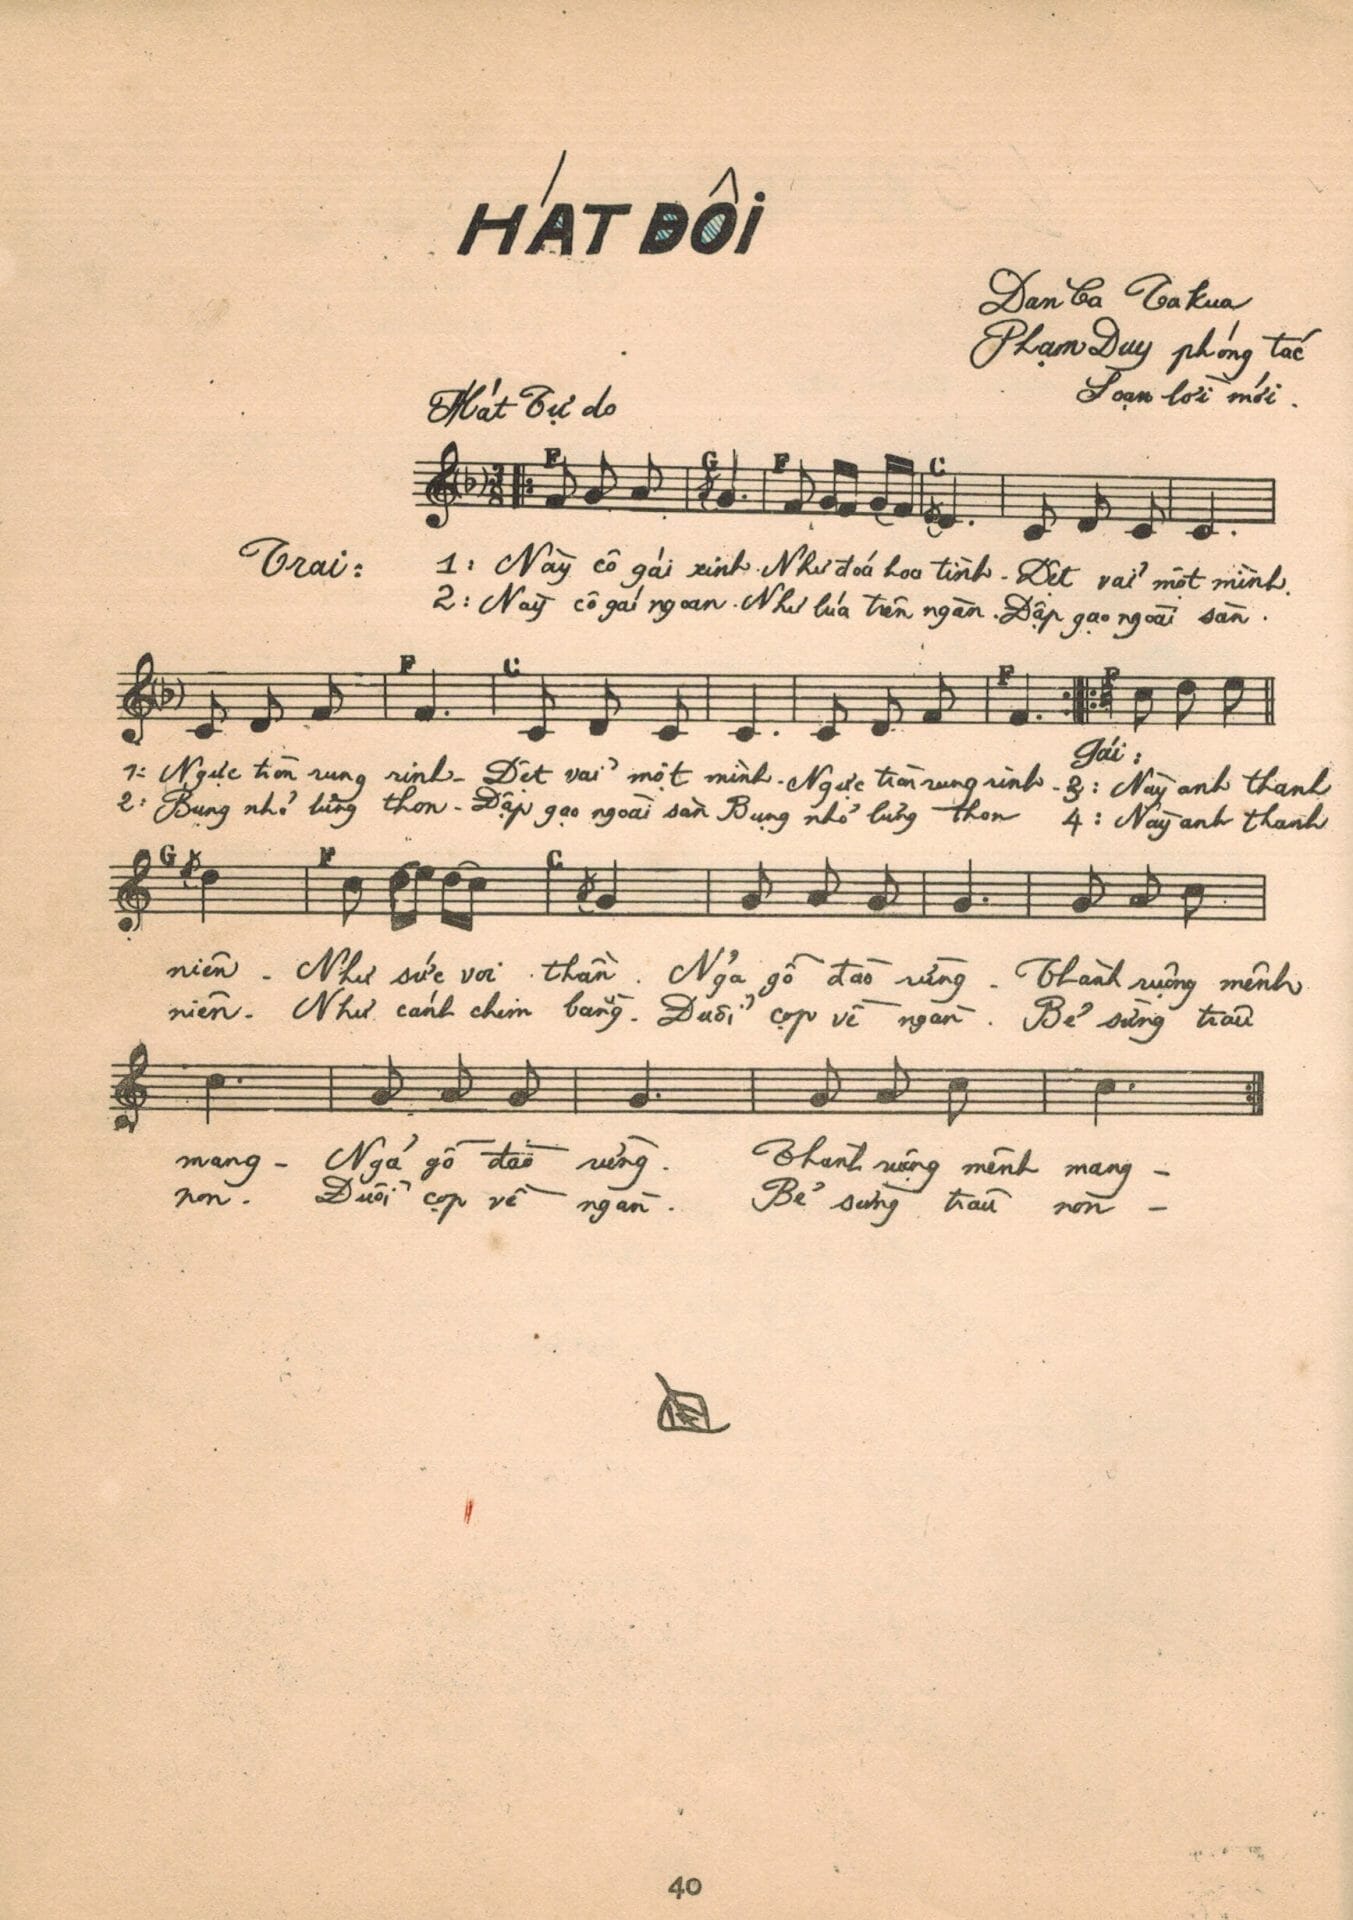 HÁT ĐÔI
Dan Ca Takua
Phạm Duy phóng tác
Soạn lời mới.
Hát Tự do
F G F C
Trai: 1: Này cô gái xinh. Như đoá hoa tình - Dệt vải một mình.
2: Này cô gái ngoan. Như lúa trên ngàn. Đập gạo ngoài sàn.
F C F F
Gái:
1: Ngực tròn rung rinh - Dệt vải một mình - Ngực tròn rung rinh - 3: Này anh thanh
2: Bụng nhỏ lưng thon - Đập gạo ngoài sàn Bụng nhỏ lưng thon 4: Này anh thanh
G F C
niên - Như sức voi thần. Ngả gỗ đào rừng - Thành ruộng mênh
niên. Như cánh chim bằng. Đuổi cọp về ngàn. Bẻ sừng trâu
mang - Ngả gỗ đào rừng. Thành ruộng mênh mang -
non. Đuổi cọp về ngàn. Bẻ sừng trâu non -
40